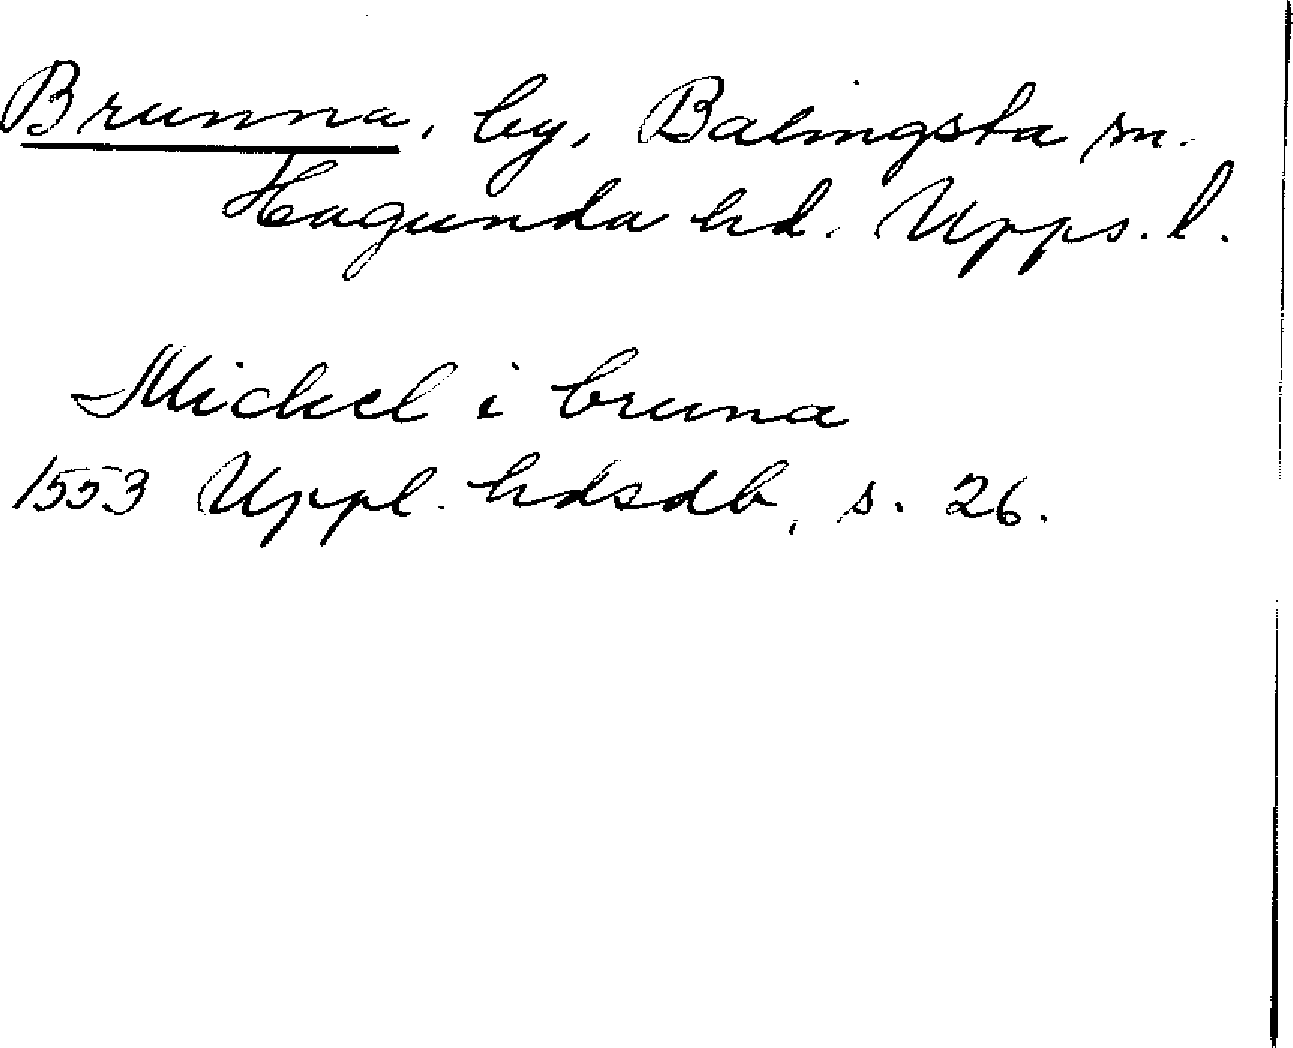 Brunna, by, Balingsta sn.
Hagunda hd. Upps. l.
Mickel i bruna
1553 Uppl. hdsdb, s. 26.